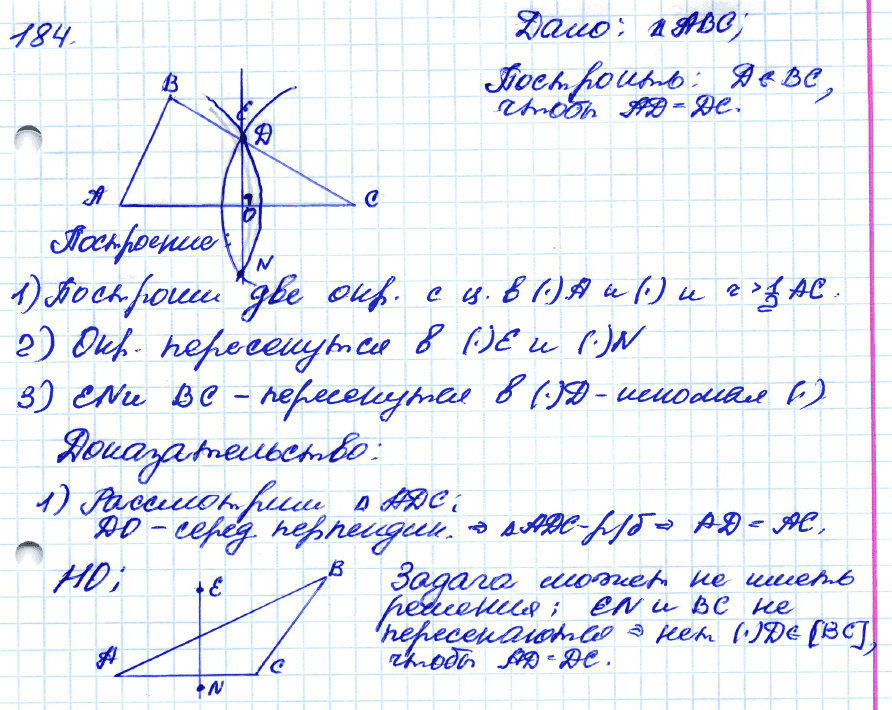 184.
Дано: △ABC;
Построить: D∈BC,
чтобы AD=DC.
B
E
D
A
O
C
N
Построение:
1) Построим две окр. с ц. в (·)A и (·) и r > 1/2 AC.
2) Окр. пересекутся в (·)E и (·)N
3) EN и BC – пересекутся в (·)D – искомая (·)
Доказательство:
1) Рассмотрим △ADC;
DO – серед. перпендик. ⇒ △ADC – р/б ⇒ AD = AC.
НО;
E
B
A
C
N
Задача может не иметь
решения; EN и BC не
пересекаются ⇒ нет (·)D∈[BC],
чтобы AD=DC.